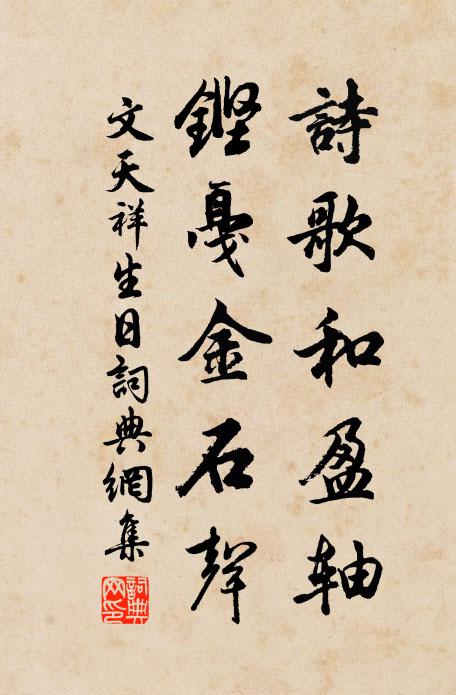 詩歌和盈軸
鏗戛金石聲
文天祥生日詞典網集
詞典
网印